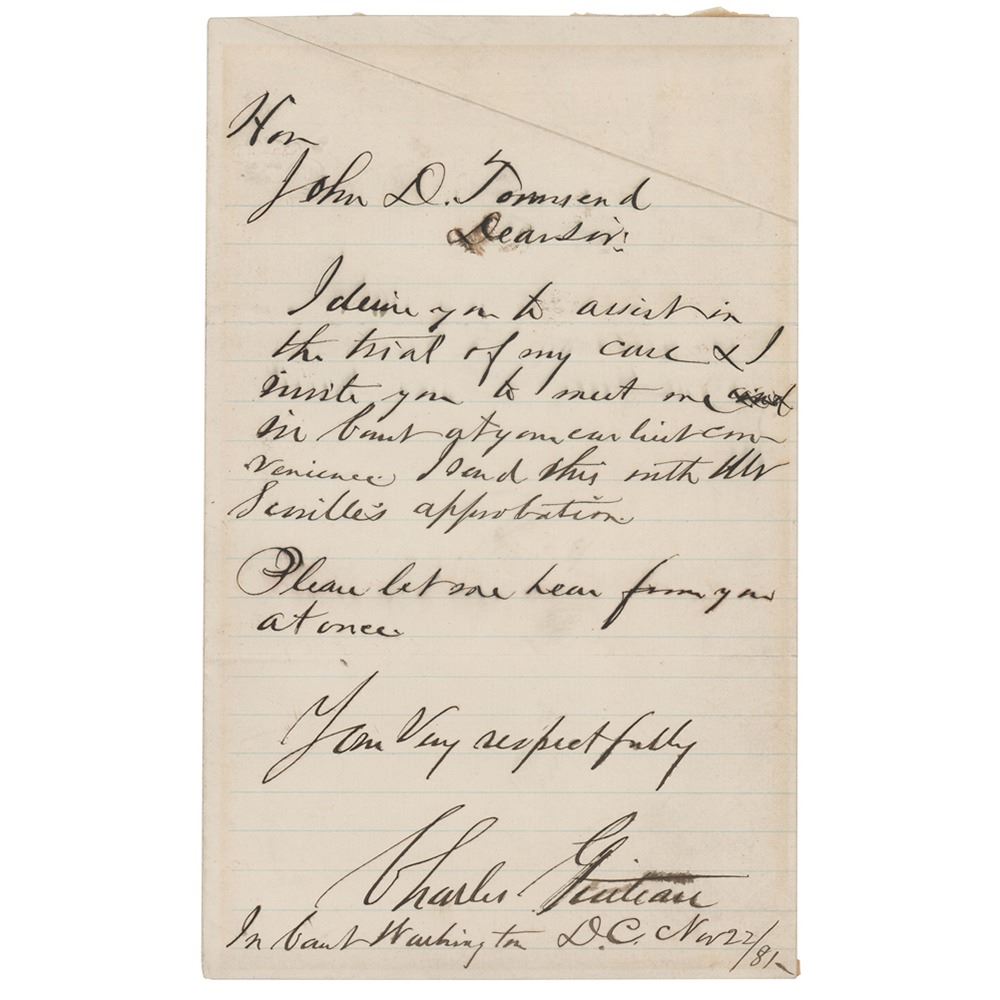 Hon
John D. Townsend
Dear Sir:
I desire you to assist in
the trial of my case & I
invite you to meet me
in Court at your earliest con-
venience. I send this with Mr
Scoville's approbation
Please let me hear from you
at once.
Your Very respectfully
Charles Guiteau
In Court Washington D.C. Nov 22/81-